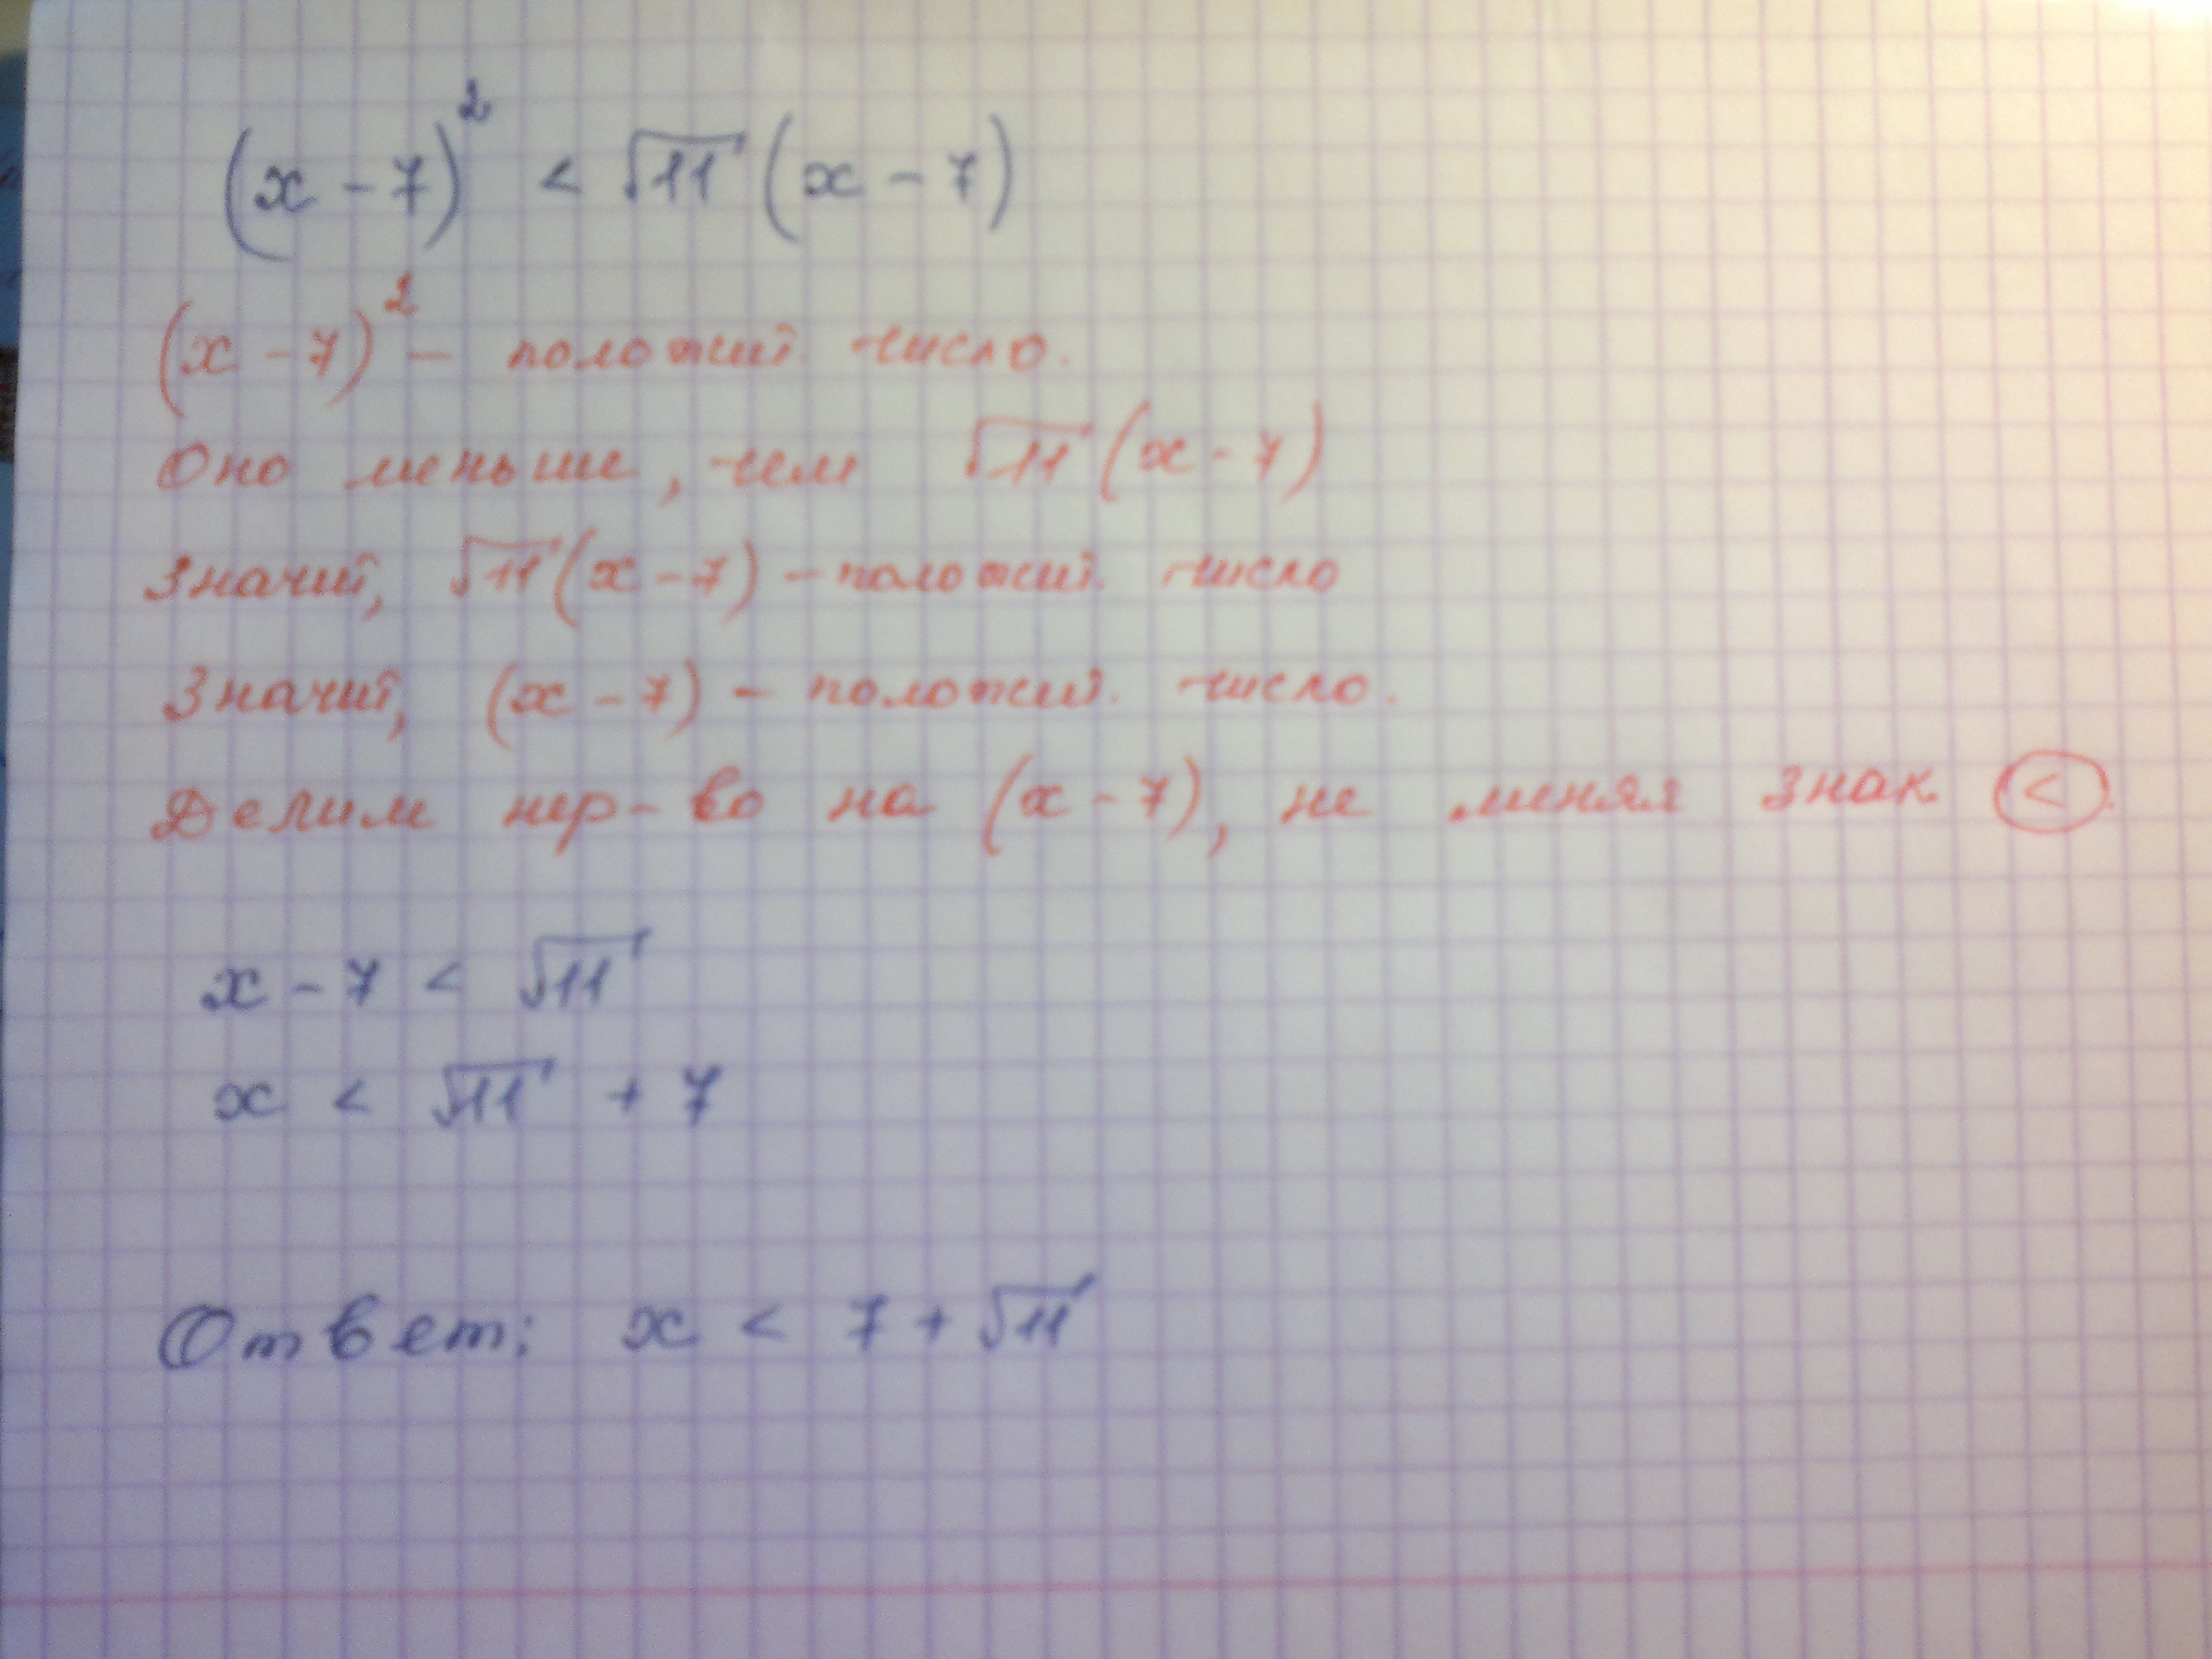 (x - 7)² < √11 (x - 7)
(x - 7)² - положит. число.
Оно меньше, чем √11 (x - 7)
Значит, √11 (x - 7) - положит. число
Значит, (x - 7) - положит. число.
Делим нер-во на (x - 7), не меняя знак <.
x - 7 < √11
x < √11 + 7
Ответ: x < 7 + √11